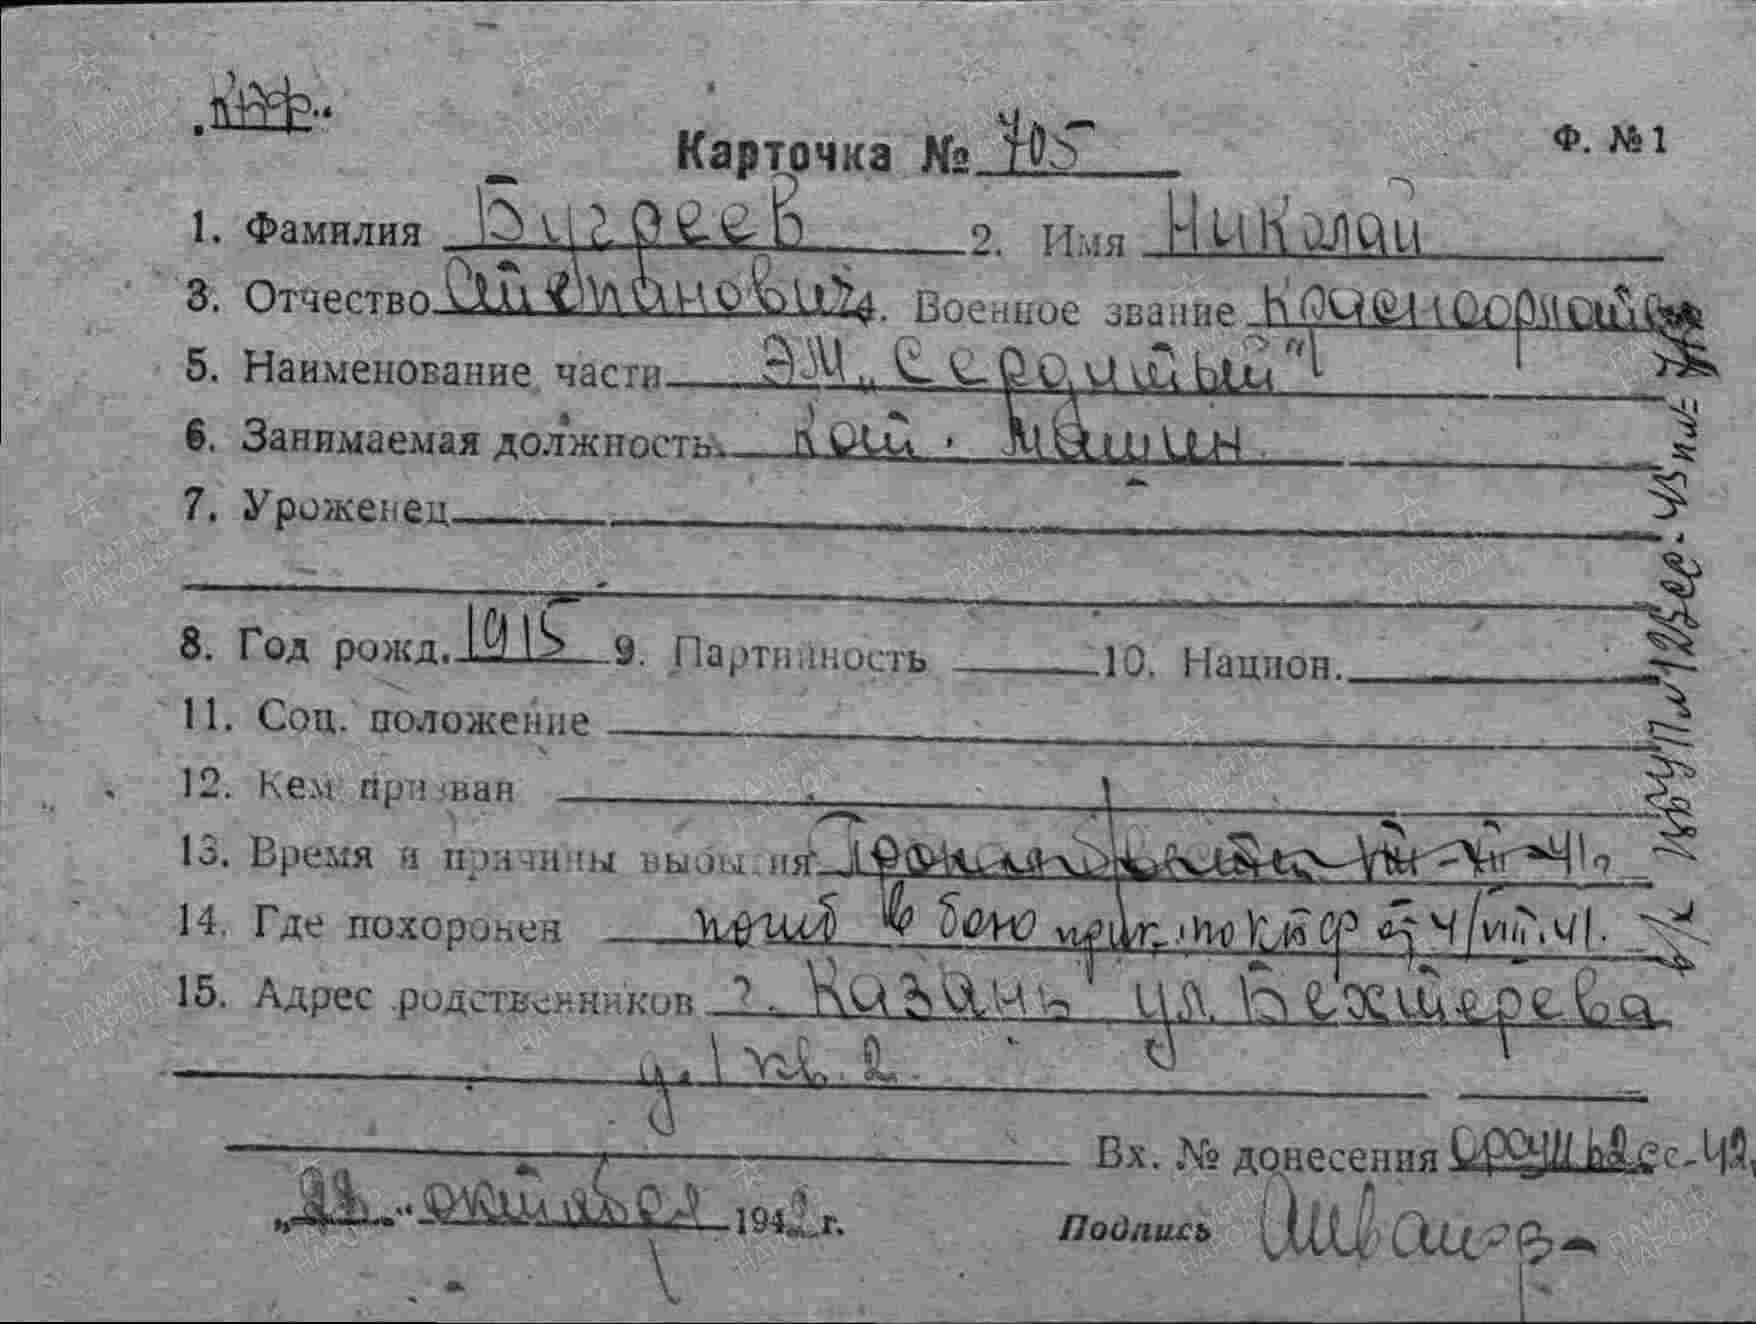 КБФ
Карточка № 705
Ф. № 1
1. Фамилия Бугреев 2. Имя Николай
3. Отчество Степанович 4. Военное звание Краснофлоец
5. Наименование части ЭМ „Сердитый"
6. Занимаемая должность кот. машин
7. Уроженец
8. Год рожд. 1915 9. Партийность 10. Национ.
11. Соц. положение
12. Кем призван
13. Время и причины выбытия VIII-41
14. Где похоронен погиб в бою КБФ 4/VIII.41.
15. Адрес родственников г. Казань ул. Бехтерева
д. 1 кв. 2.
Вх. № донесения сс-42
„22" октября 1942 г.
Подпись